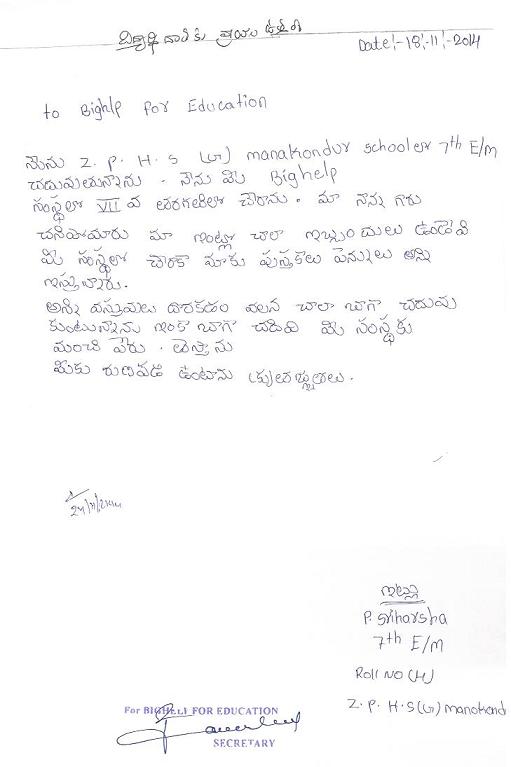 విద్యార్థి దాతకు వ్రాయు ఉత్తరం
Date:- 18-11-2014
to Bighlp for Education
నేను Z. P. H. S (G) manakondur school లో 7th E/m
చదువుతున్నాను. నేను మీ Bighelp
సంస్థలో VII వ తరగతిలో చేరాను. మా నాన్న గారు
చనిపోయారు మా ఇంట్లో చాలా ఇబ్బందులు ఉండేవి
మీ సంస్థలో చేరాక మాకు పుస్తకాలు పెన్నులు అన్ని
ఇస్తున్నారు.
అన్ని వస్తువులు దొరకడం వలన చాలా బాగా చదువు
కుంటున్నాను ఇంకా బాగా చదివి మీ సంస్థకు
మంచి పేరు. తెస్తాను
మీకు రుణపడి ఉంటాను కృతజ్ఞతలు.
ఇట్లు
P. Sriharsha
7th E/m
Roll NO (4)
Z. P. H. S (G) manakond
For BIGHELP FOR EDUCATION
SECRETARY